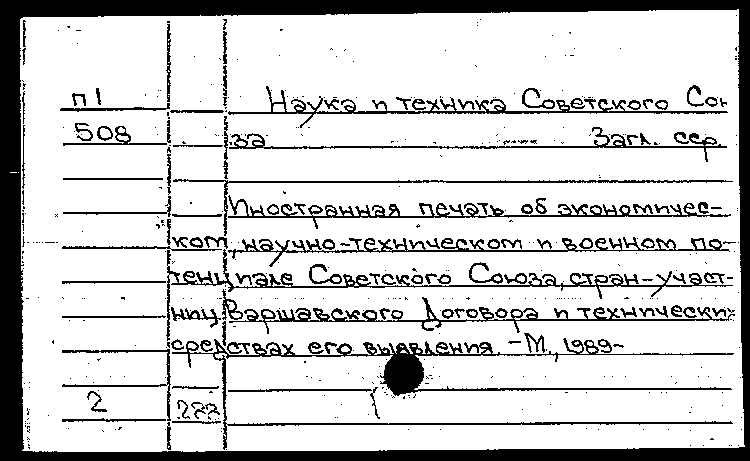 п1 Наука и техника Советского Сою
508 за Загл. сер.
Иностранная печать об экономичес-
ком, научно-техническом и военном по-
тенциале Советского Союза, стран-участ-
ниц Варшавского Договора и технических
средствах его выявления. -М., 1989-
2 223